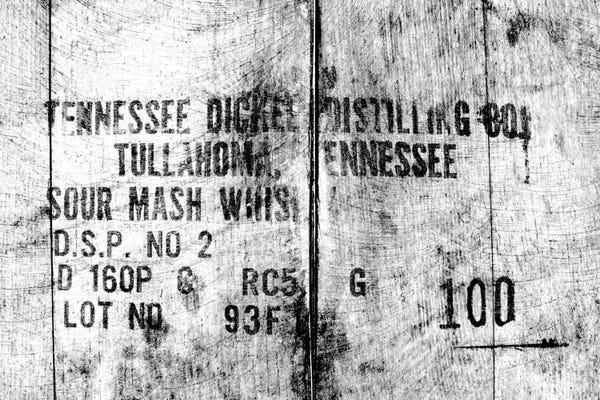 TENNESSEE DICKEL DISTILLING CO.
TULLAHOMA, TENNESSEE
SOUR MASH WHISKY
D.S.P. NO 2
D 160P & RC5 G
LOT NO 93F
100